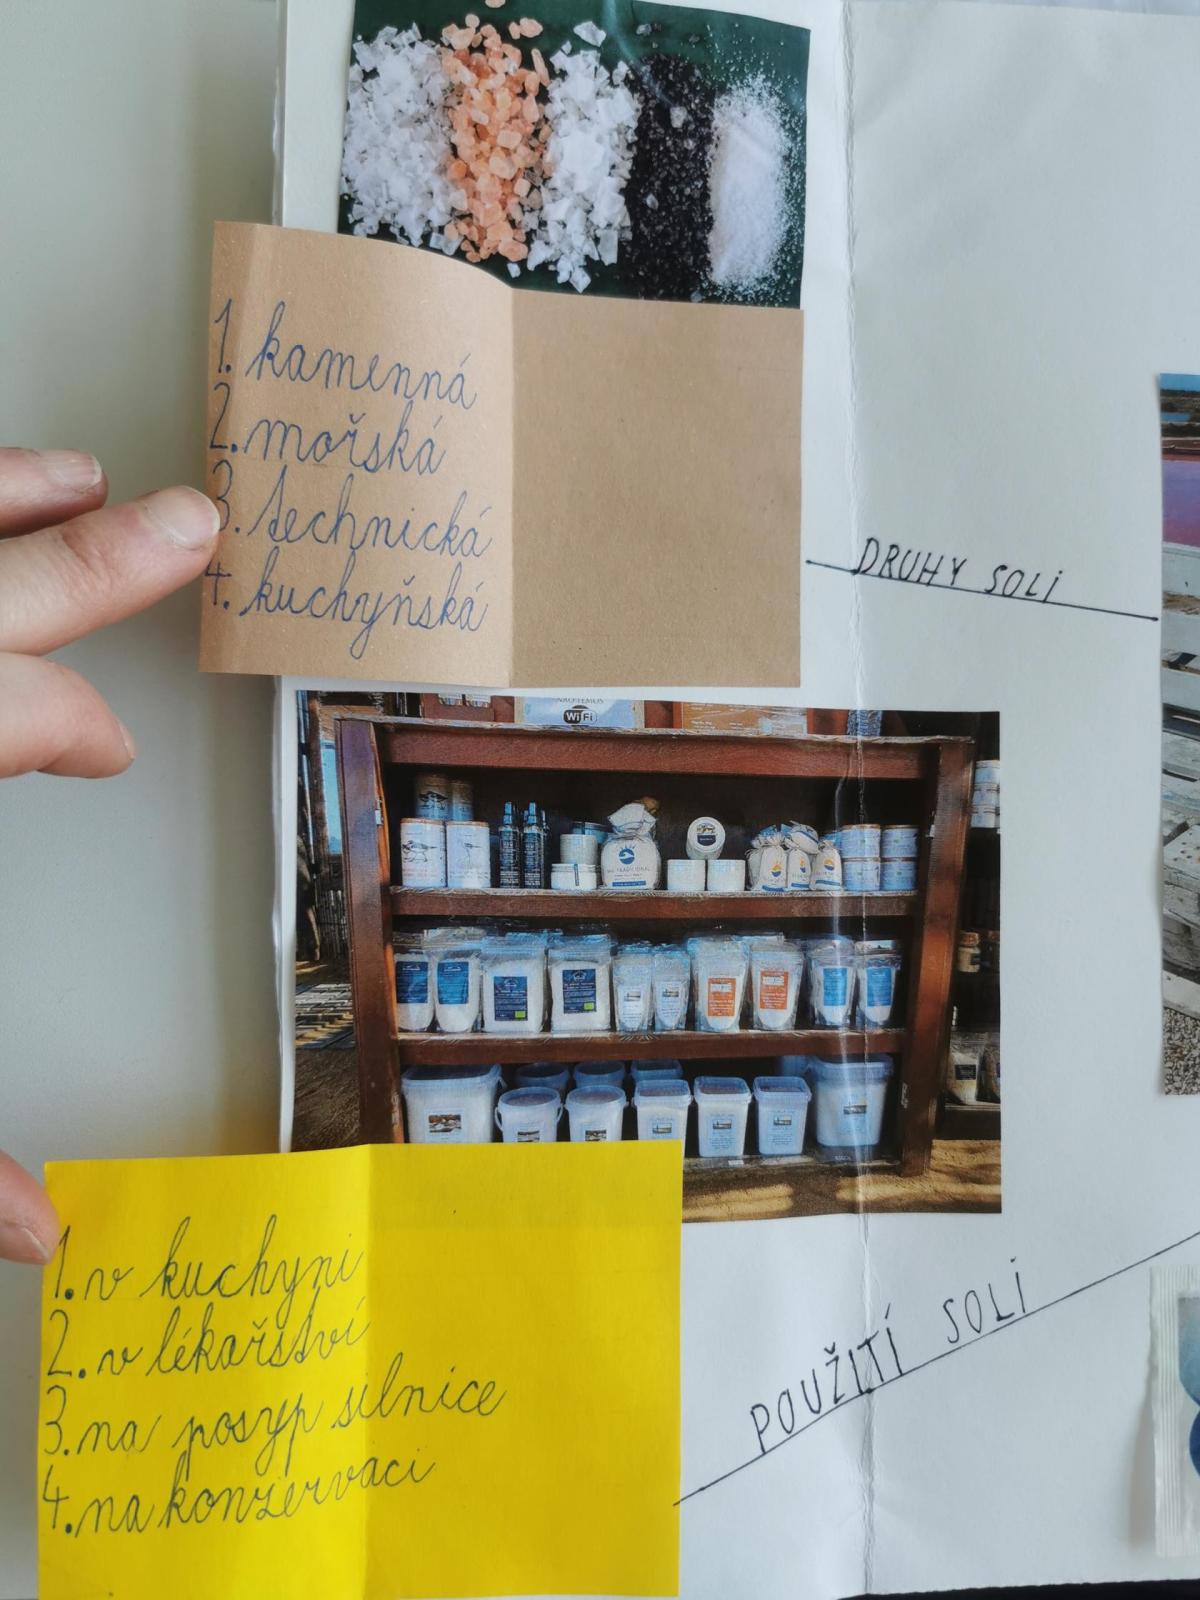 1. kamenná
2. mořská
3. technická
4. kuchyňská
DRUHY SOLI
WiFi
1. v kuchyni
2. v lékařství
3. na posyp silnice
4. na konzervaci
POUŽITÍ SOLI